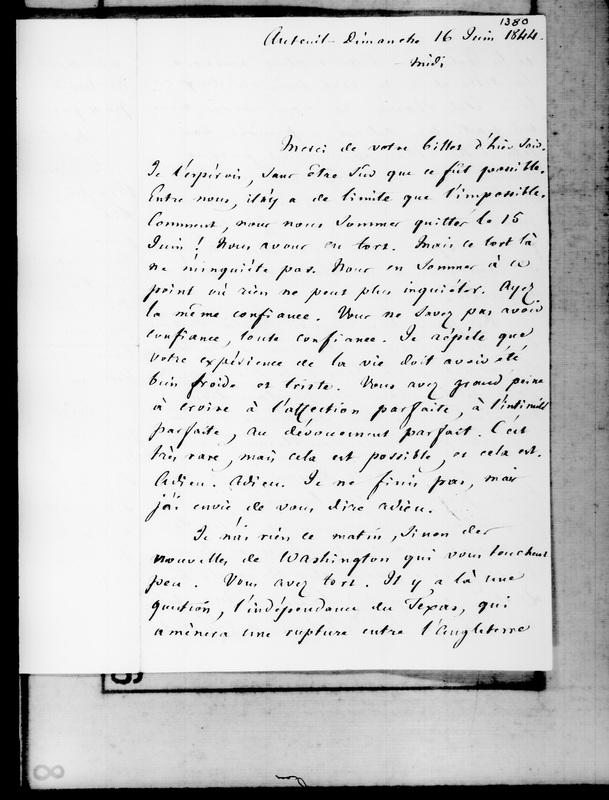 1380
Auteuil - Dimanche 16 Juin 1844 -
Midi
Merci de votre billet d'hier soir.
Je l'espérois, sans être sûr que ce fût possible.
Entre nous, il n'y a de limite que l'impossible.
Comment, nous nous sommes quittés le 15
Juin ! Nous avons eu tort. Mais ce tort là
ne m'inquiète pas. Nous en sommes à ce
point où rien ne peut plus inquiéter. Ayez
la même confiance. Vous ne savez pas avoir
confiance, toute confiance. Je répète que
votre expérience de la vie doit avoir été
bien froide et triste. Vous avez grand peine
à croire à l'affection parfaite, à l'intimité
parfaite, au dévouement parfait. C'est
très rare, mais cela est possible, et cela est.
Adieu. Adieu. Je ne finis pas, mais
j'ai envie de vous dire adieu.
Je n'ai rien ce matin, sinon des
nouvelles de Washington qui vous touchent
peu. Vous avez tort. Il y a là une
question, l'indépendance du Texas, qui
amènera une rupture entre l'Angleterre